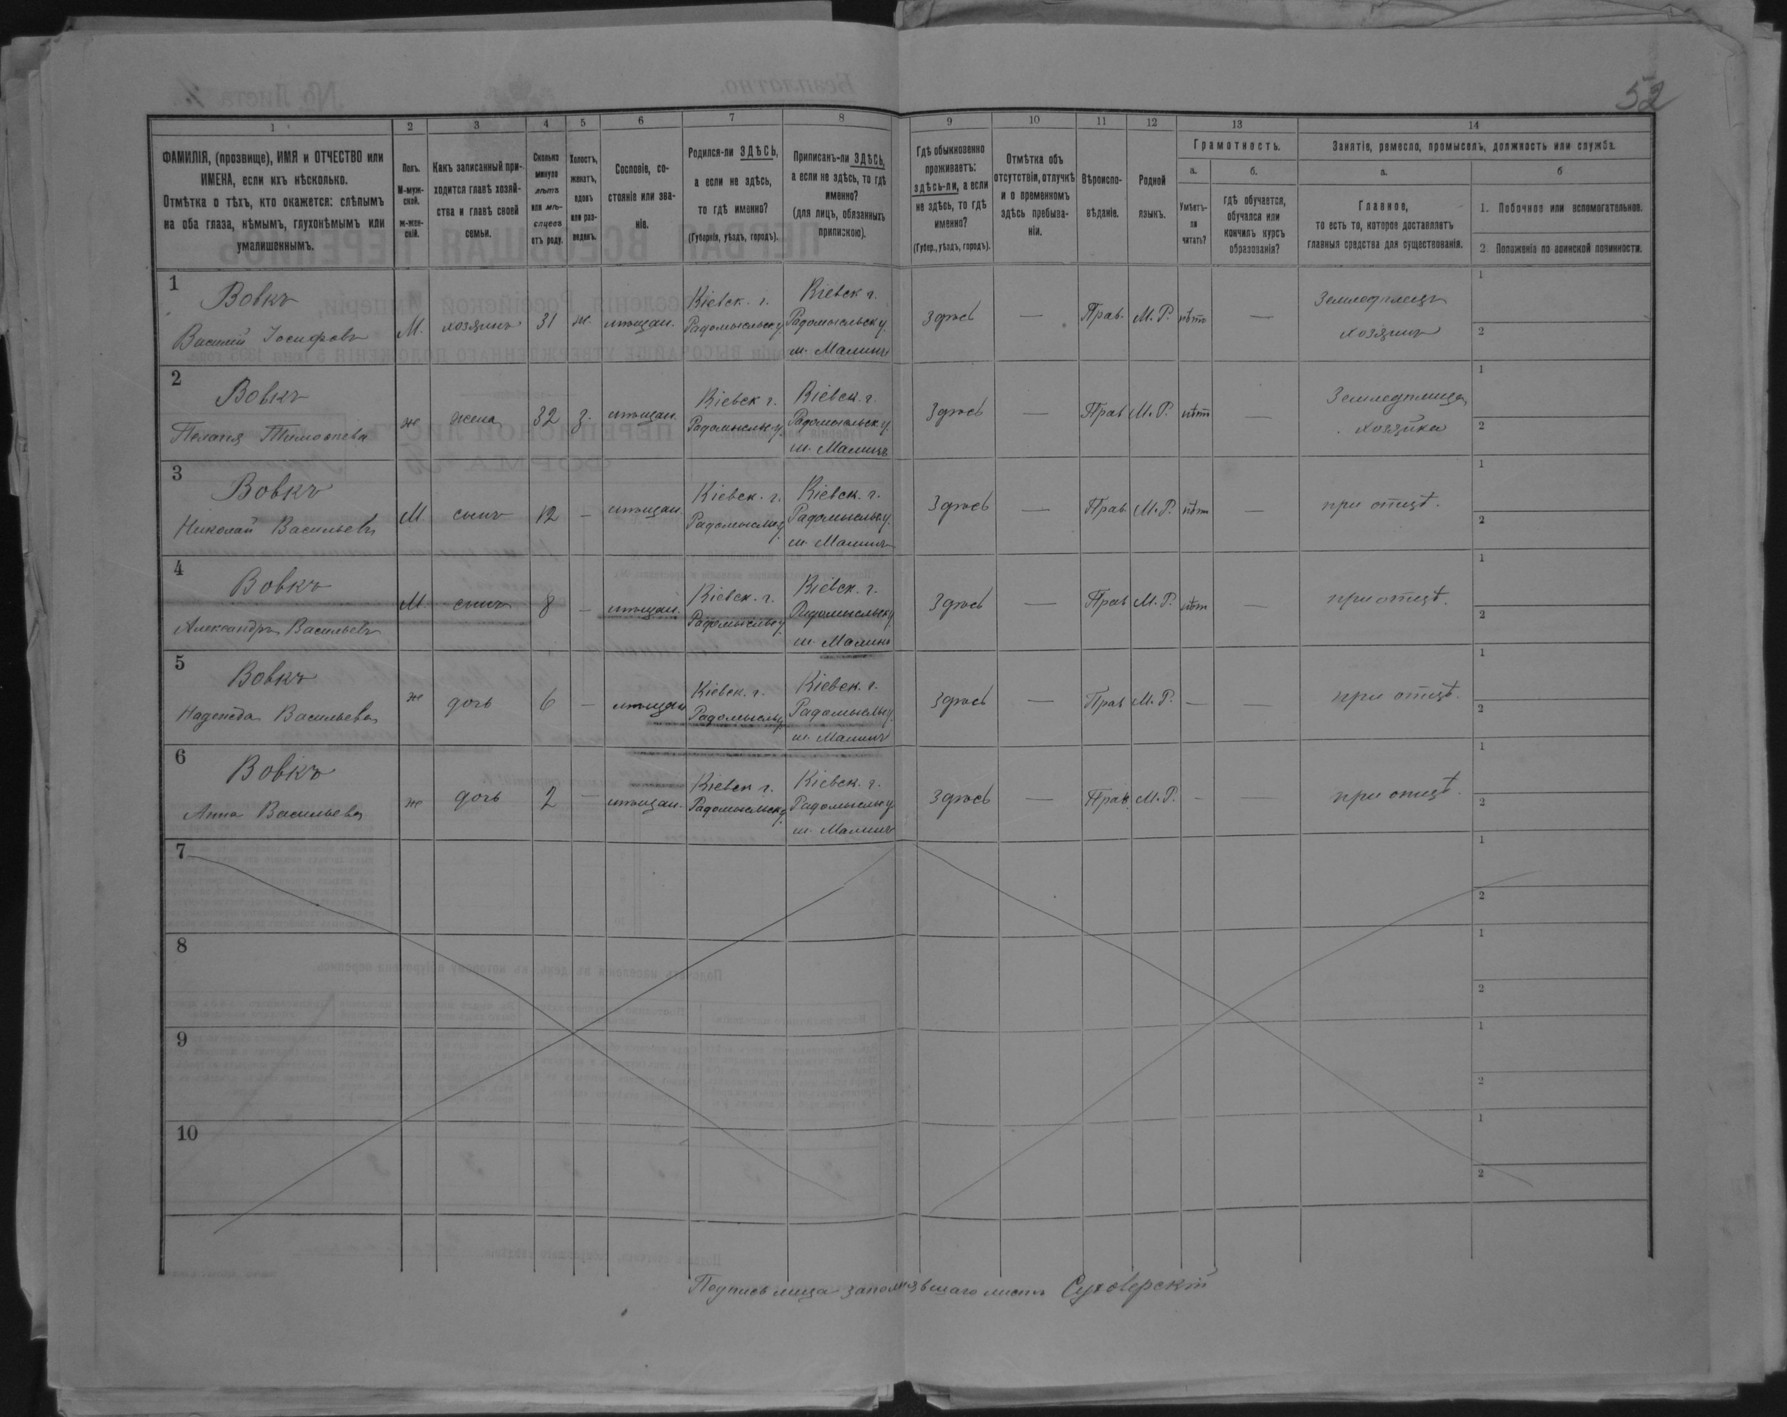 52
1 2 3 4 5 6 7 8 9 10 11 12 13 14
ФАМИЛІЯ, (прозвище), ИМЯ и ОТЧЕСТВО или
ИМЕНА, если ихъ нѣсколько.
Отмѣтка о тѣхъ, кто окажется: слѣпымъ
на оба глаза, нѣмымъ, глухонѣмымъ или
умалишеннымъ.
Полъ.
М-муж-
ской.
ж-жен-
скій.
Какъ записанный при-
ходится главѣ хозяй-
ства и главѣ своей
семьи.
Сколько
минуло
лѣтъ
или мѣ-
сяцевъ
отъ роду.
Холостъ,
женатъ,
вдовъ
или раз-
веденъ.
Сословіе, со-
стояніе или зва-
ніе.
Родился-ли ЗДѢСЬ,
а если не здѣсь,
то гдѣ именно?
(Губернія, уѣздъ, городъ).
Приписанъ-ли ЗДѢСЬ,
а если не здѣсь, то гдѣ
именно?
(для лицъ, обязанныхъ
припискою).
Гдѣ обыкновенно
проживаетъ:
здѣсь-ли, а если
не здѣсь, то гдѣ
именно?
(Губер., уѣздъ, городъ).
Отмѣтка объ
отсутствіи, отлучкѣ
и о временномъ
здѣсь пребыва-
ніи.
Вѣроиспо-
вѣданіе.
Родной
языкъ.
Грамотность.
а.
Умѣетъ-
ли
читать?
б.
Гдѣ обучается,
обучался или
кончилъ курсъ
образованія?
Занятія, ремесло, промыселъ, должность или служба.
а.
Главное,
то есть то, которое доставляетъ
главныя средства для существованія.
б
1. Побочное или вспомогательное.
2. Положеніе по воинской повинности.
1
Вовкъ
Василій Іосифовъ
М. хозяинъ 31 ж мѣщан.
Кіевск. г.
Радомысльск у.
Кіевск г.
Радомысльск у.
м. Малинъ
здѣсь — Прав. М. Р. нѣт —
Земледѣлецъ
хозяинъ
1
2
2
Вовкъ
Пелагія Тимоѳеева
ж жена 32 з. мѣщан.
Кіевск г.
Радомысльс у
Кіевск. г.
Радомысльск у.
м. Малинъ
здѣсь — Прав М. Р. нѣт —
Земледѣлица
хозяйка
1
2
3
Вовкъ
Николай Васильевъ
М. сынъ 12 — мѣщан.
Кіевск. г.
Радомысльс у.
Кіевск. г.
Радомысльс у.
м. Малинъ
здѣсь — Прав М. Р. нѣт —
при отцѣ.
1
2
4
Вовкъ
Александръ Васильевъ
М. сынъ 8 — мѣщан.
Кіевск. г.
Радомысльс у.
Кіевск. г.
Радомысльск у
м. Малинъ
здѣсь — Прав М. Р. нѣт —
при отцѣ.
1
2
5
Вовкъ
Надежда Васильева
ж дочь 6 — мѣщан
Кіевск. г.
Радомысльс у.
Кіевск. г.
Радомысльс у.
м. Малинъ
здѣсь — Прав М. Р. — —
при отцѣ.
1
2
6
Вовкъ
Анна Васильева
ж дочь 2 — мѣщан.
Кіевск г.
Радомысльск у.
Кіевск. г.
Радомысльс у
м. Малинъ
здѣсь — Прав. М. Р. - —
при отцѣ.
1
2
7
1
2
8
1
2
9
1
2
10
1
2
Подпись лица заполнявшаго листъ Суховерскій